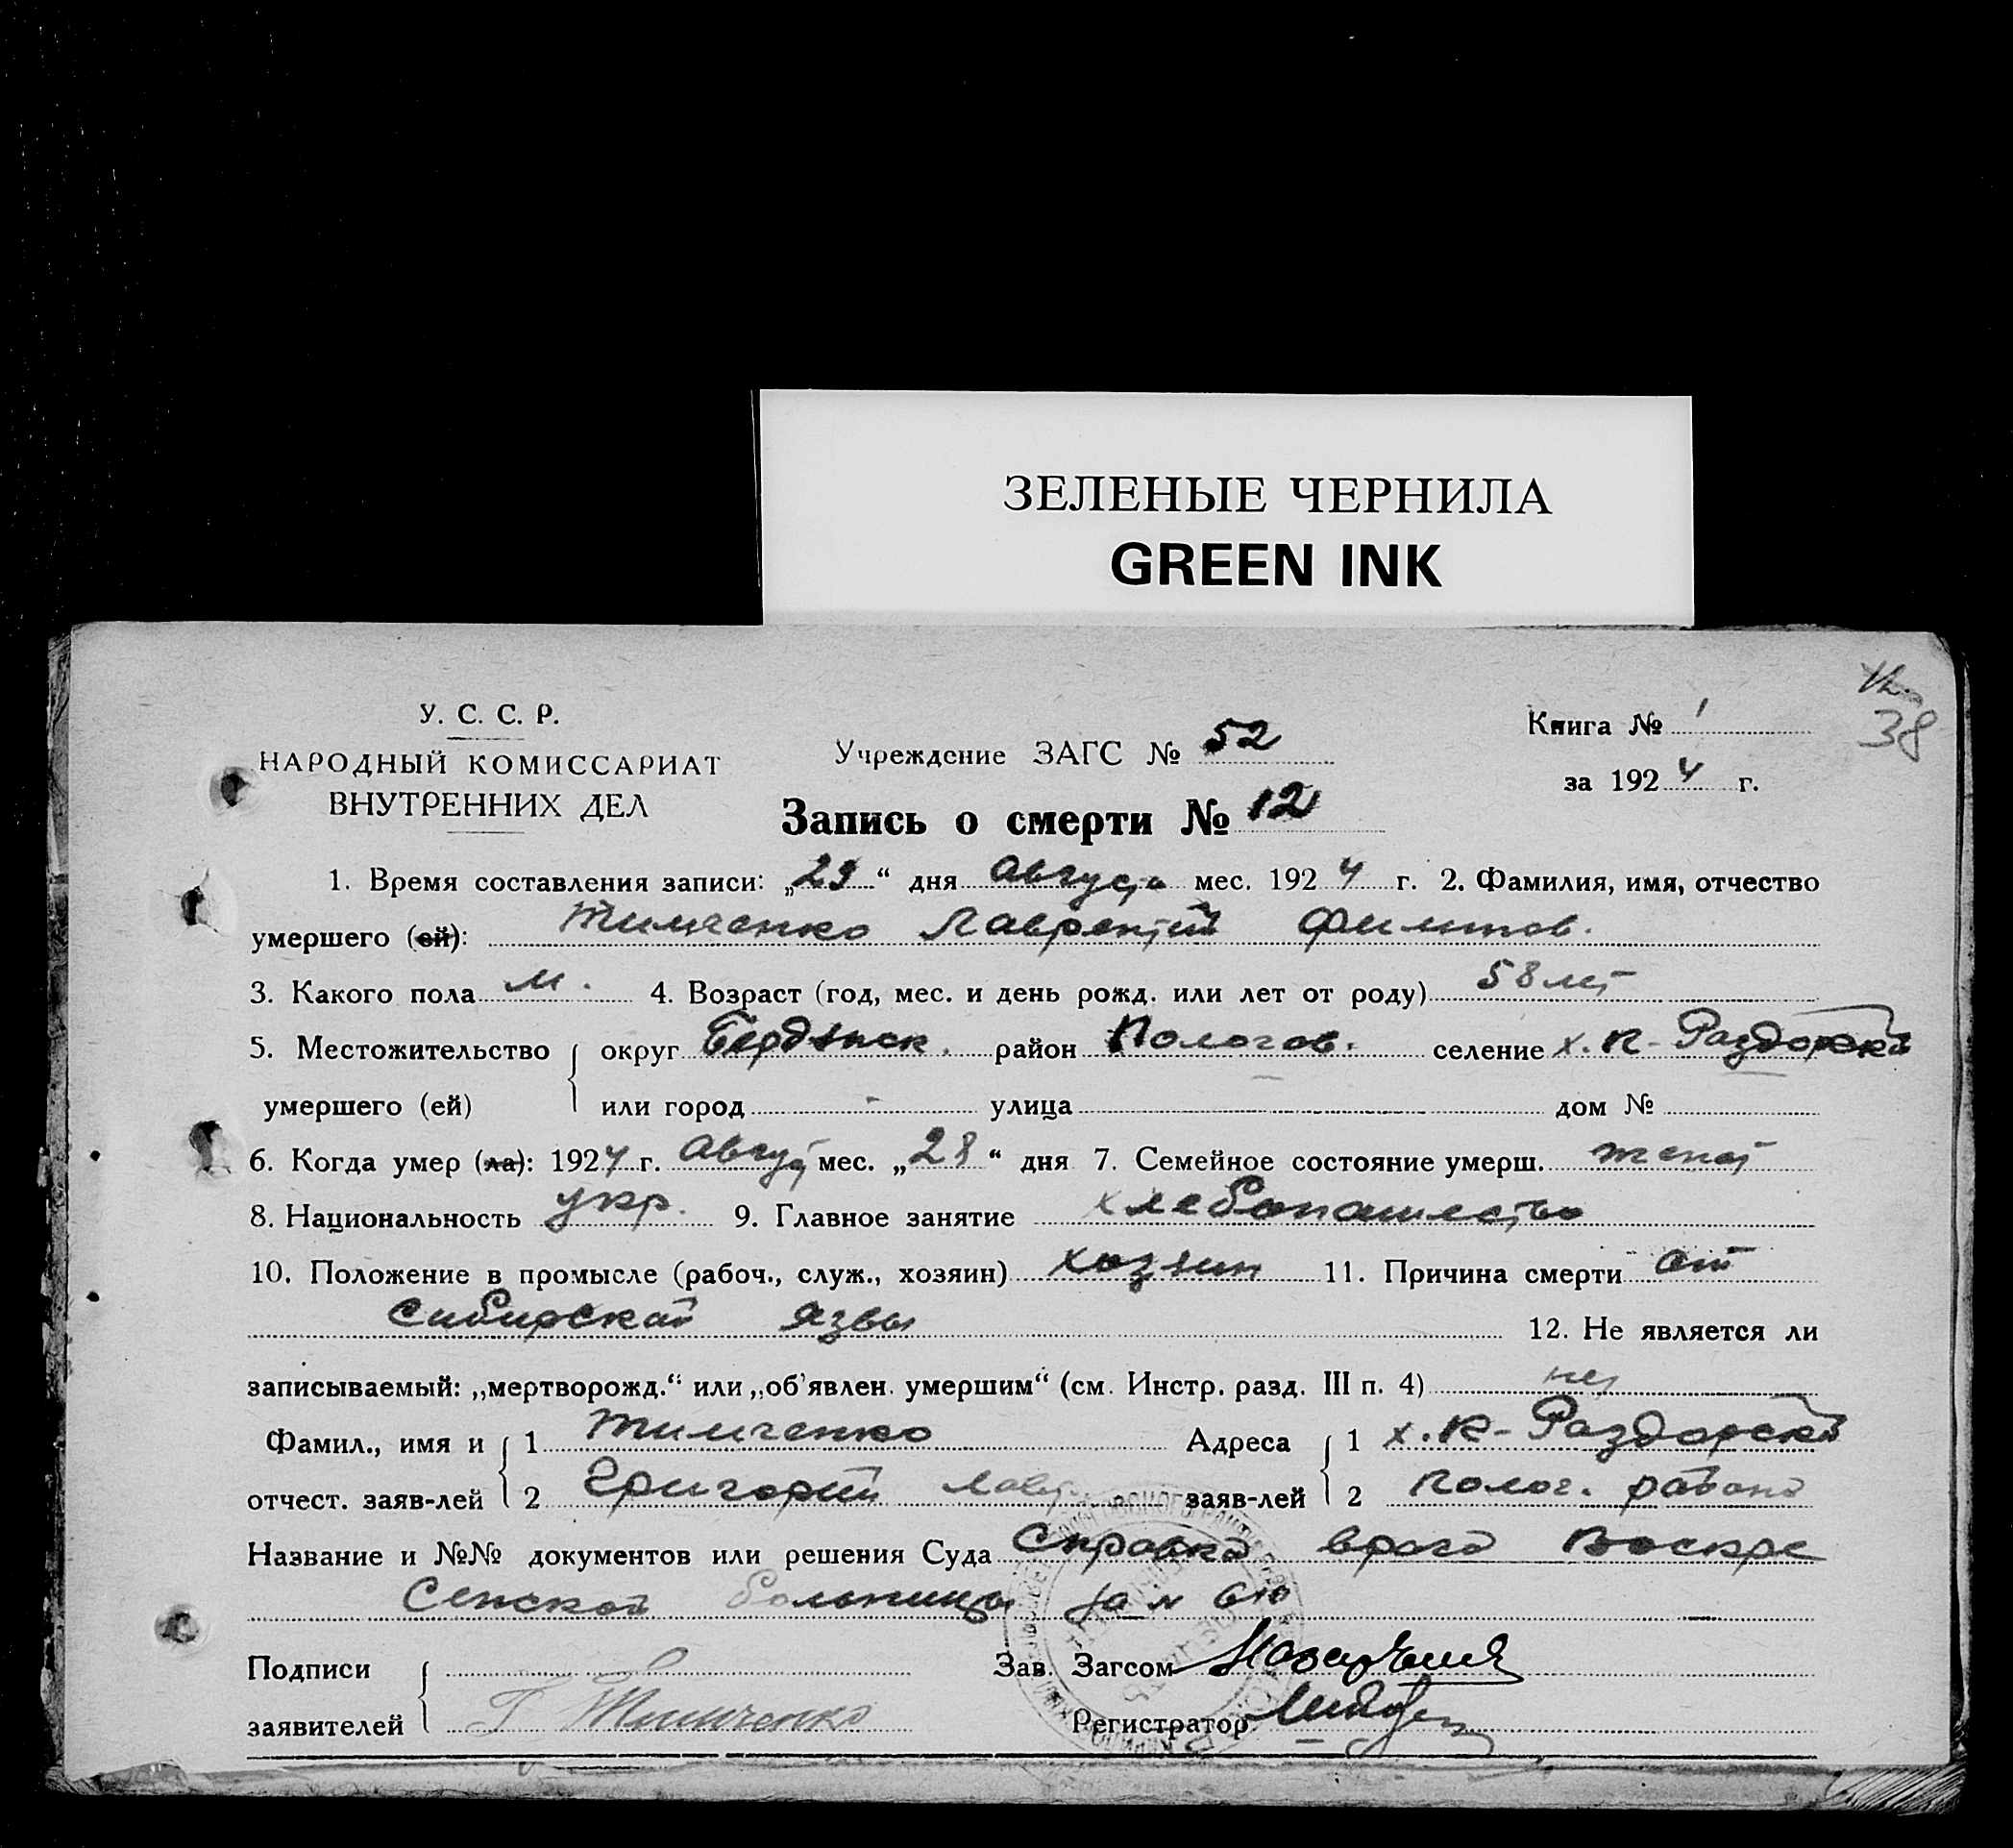 ЗЕЛЕНЫЕ ЧЕРНИЛА
GREEN INK
38
У. С. С. Р.
НАРОДНЫЙ КОМИССАРИАТ
ВНУТРЕННИХ ДЕЛ
Учреждение ЗАГС № 52
Книга № 1
за 1924 г.
Запись о смерти № 12
1. Время составления записи: „29“ дня Августа мес. 1924 г. 2. Фамилия, имя, отчество
умершего (ей): Тимченко Лаврентий Филипов.
3. Какого пола м. 4. Возраст (год, мес. и день рожд. или лет от роду) 58 лет
5. Местожительство округ Бердянск. район Пологов. селение х. К-Раздорский
умершего (ей) или город - улица дом №
6. Когда умер (ла): 1924 г. Август мес. „28“ дня 7. Семейное состояние умерш. женат
8. Национальность укр. 9. Главное занятие хлебопашество
10. Положение в промысле (рабоч., служ., хозяин) хозяин 11. Причина смерти от
сибирской язвы 12. Не является ли
записываемый: „мертворожд.“ или „об'явлен. умершим“ (см. Инстр. разд. III п. 4) нет
Фамил., имя и 1 Тимченко Адреса 1 х. К-Раздорский
отчест. заяв-лей 2 Григорий Лавр. заяв-лей 2 Полог. района
Название и №№ документов или решения Суда Справка врача Воскре
сенской больницы за № 610
Подписи Зав. Загсом
заявителей Г Тимченко Регистратор